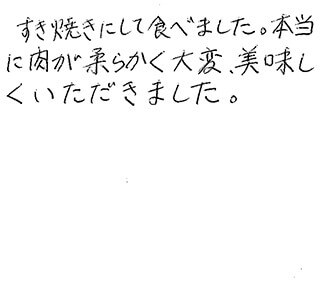 すき焼きにして食べました。本当
に肉が柔らかく大変、美味し
くいただきました。